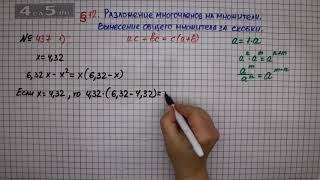 § 12. Разложение многочленов на множители.
Вынесение общего множителя за скобки.
№ 437 1)
ac + bc = c(a+b)
a = 1·a
x = 4,32
aⁿ · aᵐ = aⁿ⁺ᵐ
6,32x − x² = x(6,32−x)
aᵐ/aⁿ = aᵐ⁻ⁿ
Если x = 4,32, то 4,32·(6,32−4,32)=